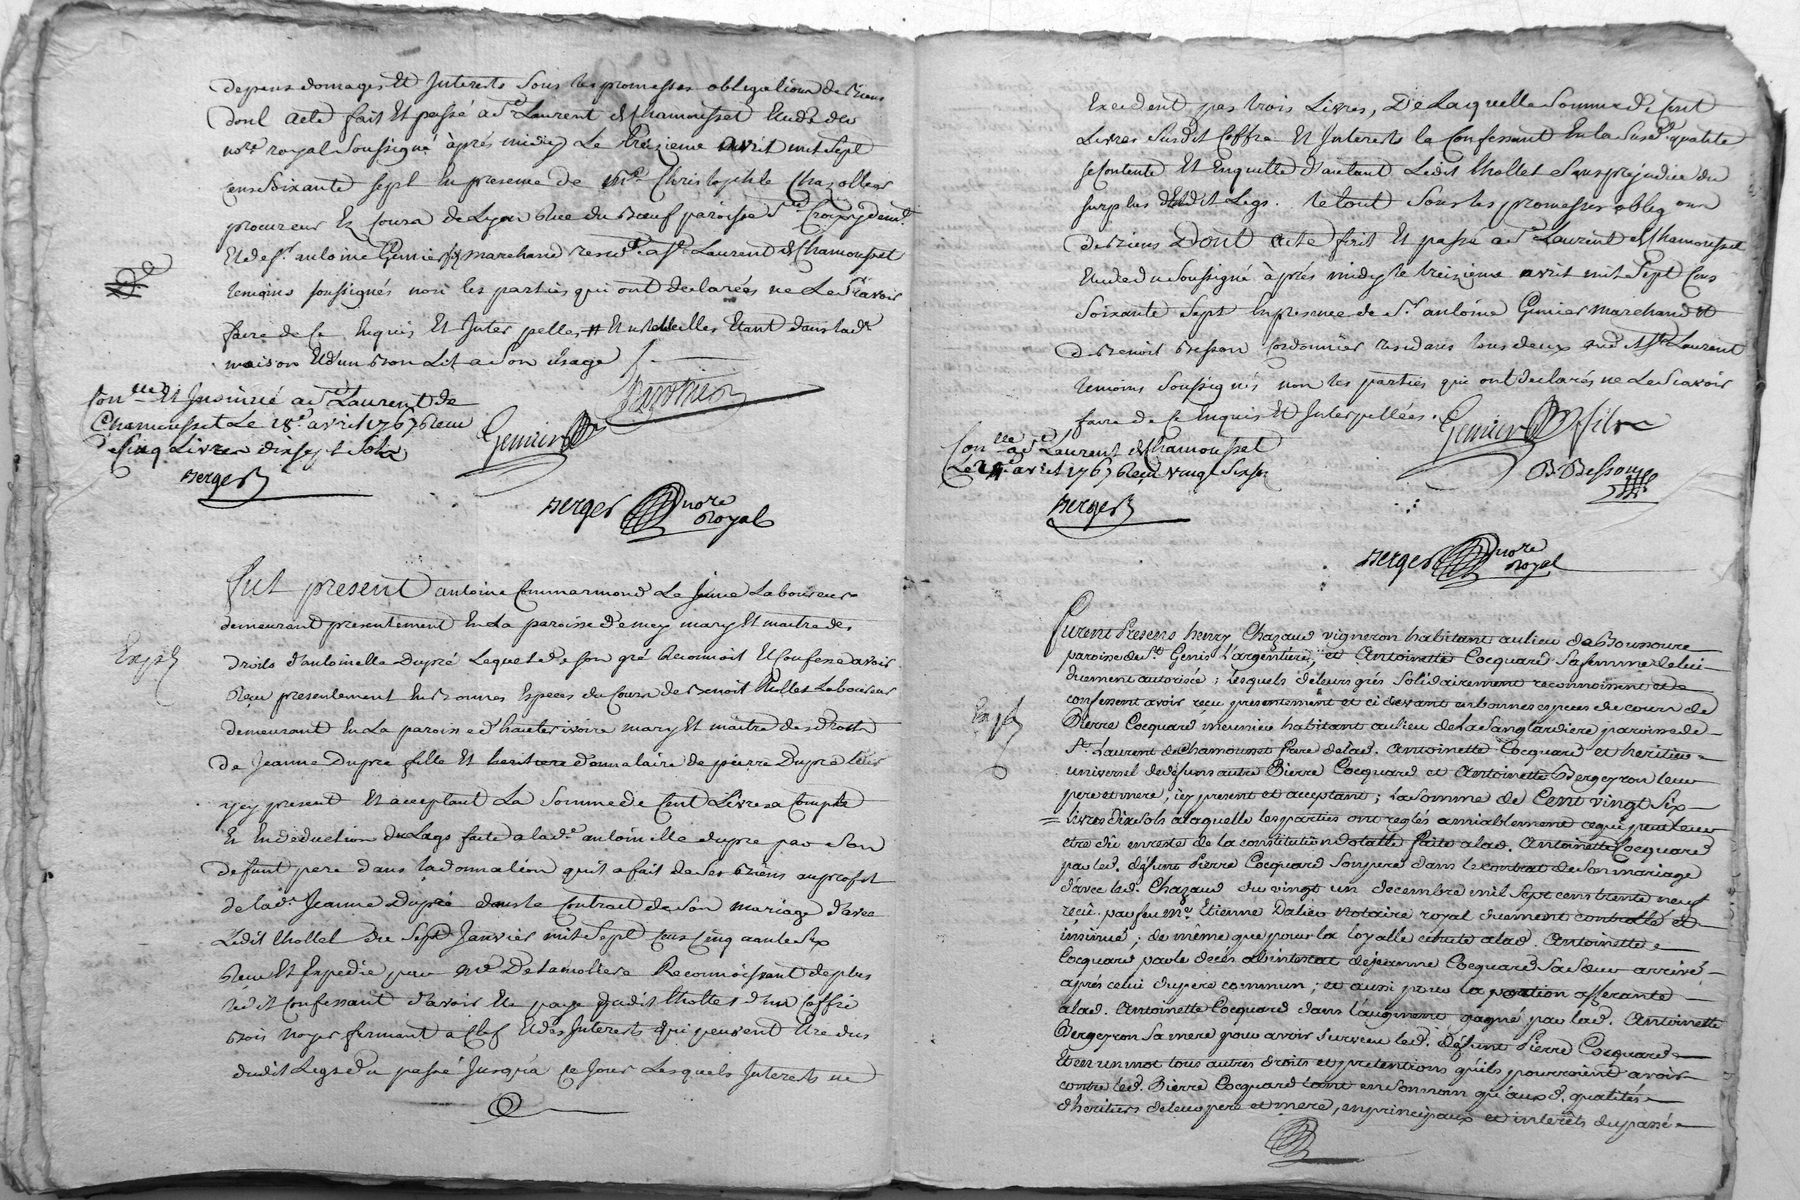 depens domages et Interests sous les promesses obligations de biens
dont acte fait et passé a St Laurent de Chamousset Etude du
nore royal soussigné après midy Le treizieme avril mil sept
cens soixante sept En presence de Me Christophle Chazottier
procureur Es Cours de Lyon rue du Bœuf paroisse Ste Croix y demt
Et de Sr antoine Genier marchand residt a St Laurent de Chamousset
temoins soussignés non les parties qui ont declarées ne Le sçavoir
faire de Ce Enquis Et Inter pellés # Et
maison Et d'un bon Lit a son usage
Conlle et Insinué a St Laurent de
Chamousset Le 18e avril 1767 Reçu
Cinq Livres dix sept sols
Berger
Genier
Berger nore
Royal
Fut present antoine Commarmond Le Jeune Laboureur
demeurant presentement En La paroisse d'emey mary Et maitre des
Exp
droits d'antoinette Dupré Lequel de son gré Reconnoit Et Confesse avoir
Reçu presentement En bonnes Especes du Cours de Benoit Thollet Laboureur
demeurant En La paroisse d'hauterivoire mary Et maitre des droits
de Jeanne Dupré fille Et heritiere donnataire de pierre Dupré
yey present Et acceptant La Somme de Cent Livres a Compte
Et En deduction du Legs faite a lade antoinette dupre par son
defunt pere dans la donnation qu'il a fait de ses biens au profit
de lade Jeanne Dupré dans le Contrat de son mariage d'avec
Ledit thollet du Sept Janvier mil Sept Cens Cinquante Six
Reçu Et Expedie par Me Delamoliere Reconnoissant de plus
Ledit Confessant d'avoir Eté payé dudit thollet d'un Coffre
bois noyer fermant a Clef Et des Interests qui peuvent Etre dus
dudit Legs du passé Jusqu'à Ce Jour Lesquels Interests ne
Excedent pas trois Livres, De Laquelle Somme de Cent
Livres Susdit Coffre Et Interests le Confessant En la Susde qualité
se Contente Et Enquitte d'autant Ledit thollet Sans prejudice du
surplus dudit Legs. le tout Sous les promesses oblig ons
de biens Dont acte fait Et passé a St Laurent de Chamousset
Etude du Soussigné après midy le treizieme avril mil Sept Cens
Soixante Sept En presence de Sr antoine Genier marchand Et
de Benoit Besson Cordonnier residans tous deux aud St Laurent
temoins Soussignés non les parties qui ont declarés ne Le Scavoir
faire de Ce Enquis Et Interpellées.
Genier
Conlle a St Laurent de Chamousset
avril 1767 Reçu vingt Six s
B Besson
Berger
Berger nore
Royal
Furent Presens henry Chazaud vigneron habitant au lieu de
paroisse de St Genis L'argentiere, et Antoinette Cocquard Sa femme de lui
duement autorisée ; Lesquels de leurs grés Solidairement reconnoissent et
Exp
confessent avoir reçu presentement et ci devant en bonnes especes de cours de
Pierre Cocquard meunier habitant au lieu de La Sanglardiere paroisse de
St Laurent de Chamousset frere de lad. Antoinette Cocquard et heritier
universel de defunts autre Pierre Cocquard et Antoinette Bergeyron leur
pere et mere, icy present et acceptant ; La Somme de Cent vingt Six
Livres Dix Sols a laquelle les parties ont reglés amiablement ce qui peut leur
etre dû en reste de la constitution dotalle faite a lad. Antoinette Cocquard
par led. defunt Pierre Cocquard Son pere dans le contrat de Son mariage
d'avec led. Chazaud du vingt un decembre mil Sept cens trente neuf
reçu par feu Me Etienne Dalieu Notaire royal duement contrôllé et
insinué ; de même que pour la loyalle echute a lad. Antoinette
Cocquard par le deces abintestat de Jeanne Cocquard Sa Sœur arrivé
après celui du pere commun ; et aussi pour la portion afferante
a lad. Antoinette Cocquard dans l'augment gagné par lad. Antoinette
Bergeyron Sa mere pour avoir Survecu led. defunt Pierre Cocquard
Et en un mot tous autres droits et pretentions qu'ils pourroient avoir
contre led. Pierre Cocquard tant en Son nom qu'aux d. qualités
d'heritiers de leur pere et mere, en principaux et interêts du passé